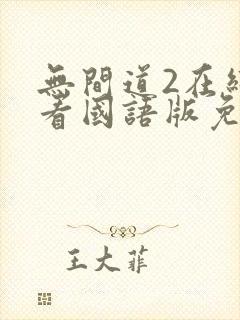 無間道2在
看國語版免
王大菲